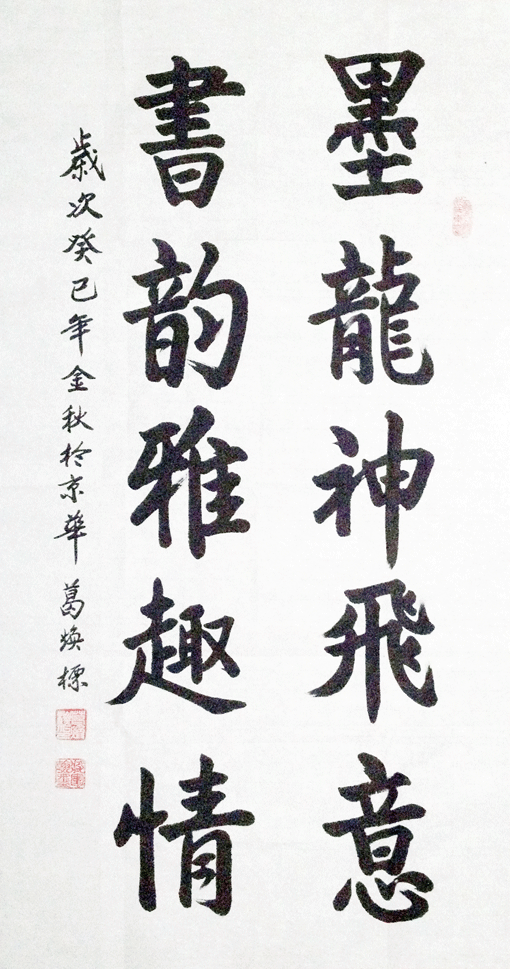 墨龍神飛意
書韵雅趣情
歲次癸巳年金秋於京華 葛焕標